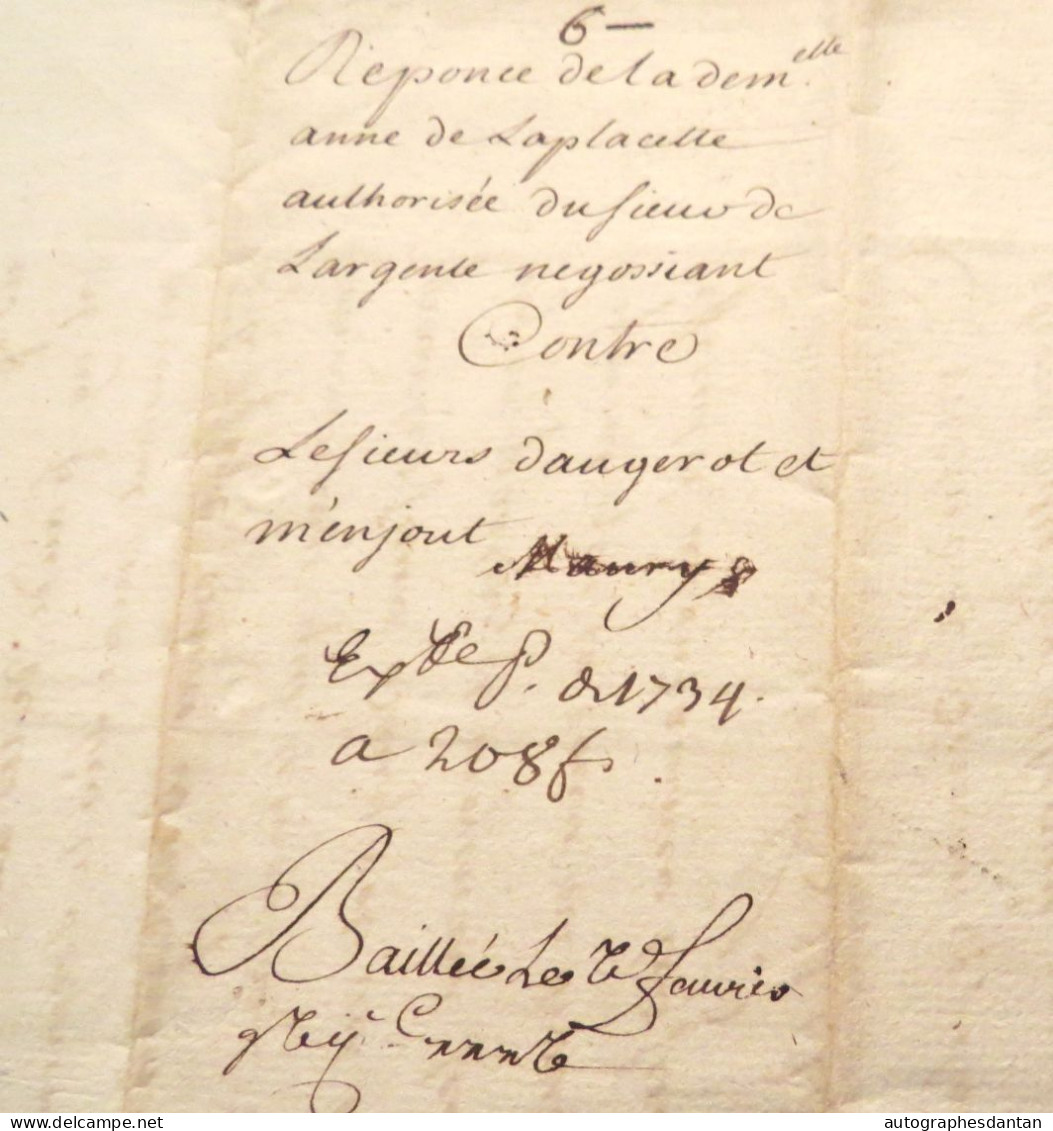 6 —
Reponce de la dem.elle
anne de Laplacette
authorisée du sieur de
Largente negossiant
Contre
Les sieurs daugerot et
m'enjout Maury
de 1734.
a 208 f.
Baillée Le
delcampe.net
autographesdantan